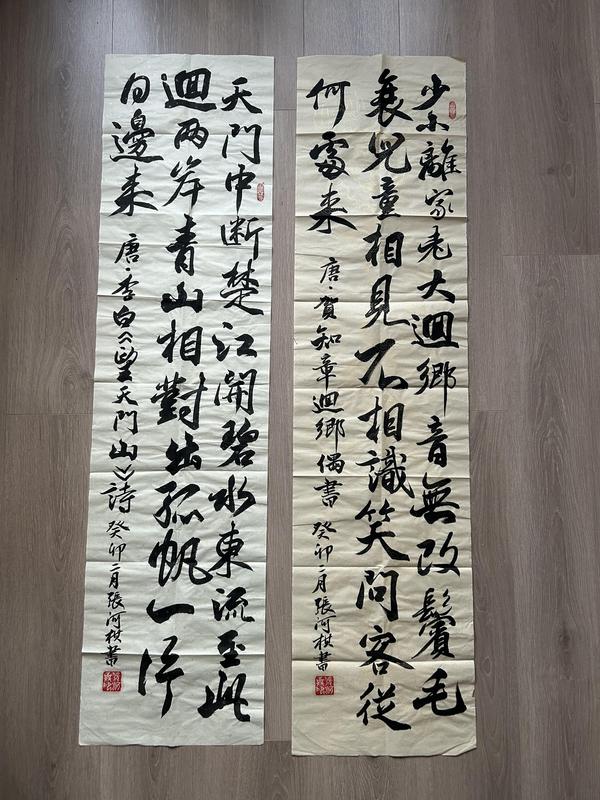 少小離家老大迴鄉音無改鬢毛
衰兒童相見不相識笑問客從
何處来 唐·賀知章迴鄉偶書 癸卯二月張河書
天門中断楚江開碧水東流至此
迴两岸青山相對出孤帆一片
日邊来 唐·李白《望天門山》詩 癸卯二月張河書